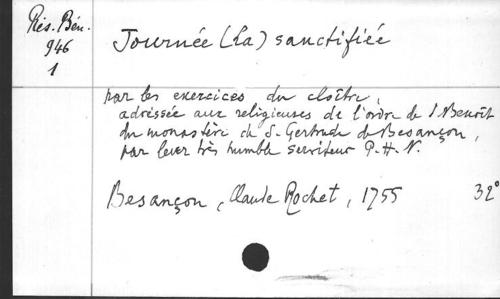 Rés. Bén.
946
1
Journée (La) sanctifiée
par les exercices du cloître,
adressée aux religieuses de l'ordre de S. Benoît
du monastère de S. Gertrude de Besançon,
par leur très humble serviteur P. H. N.
Besançon, Claude Rochet, 1755 32°